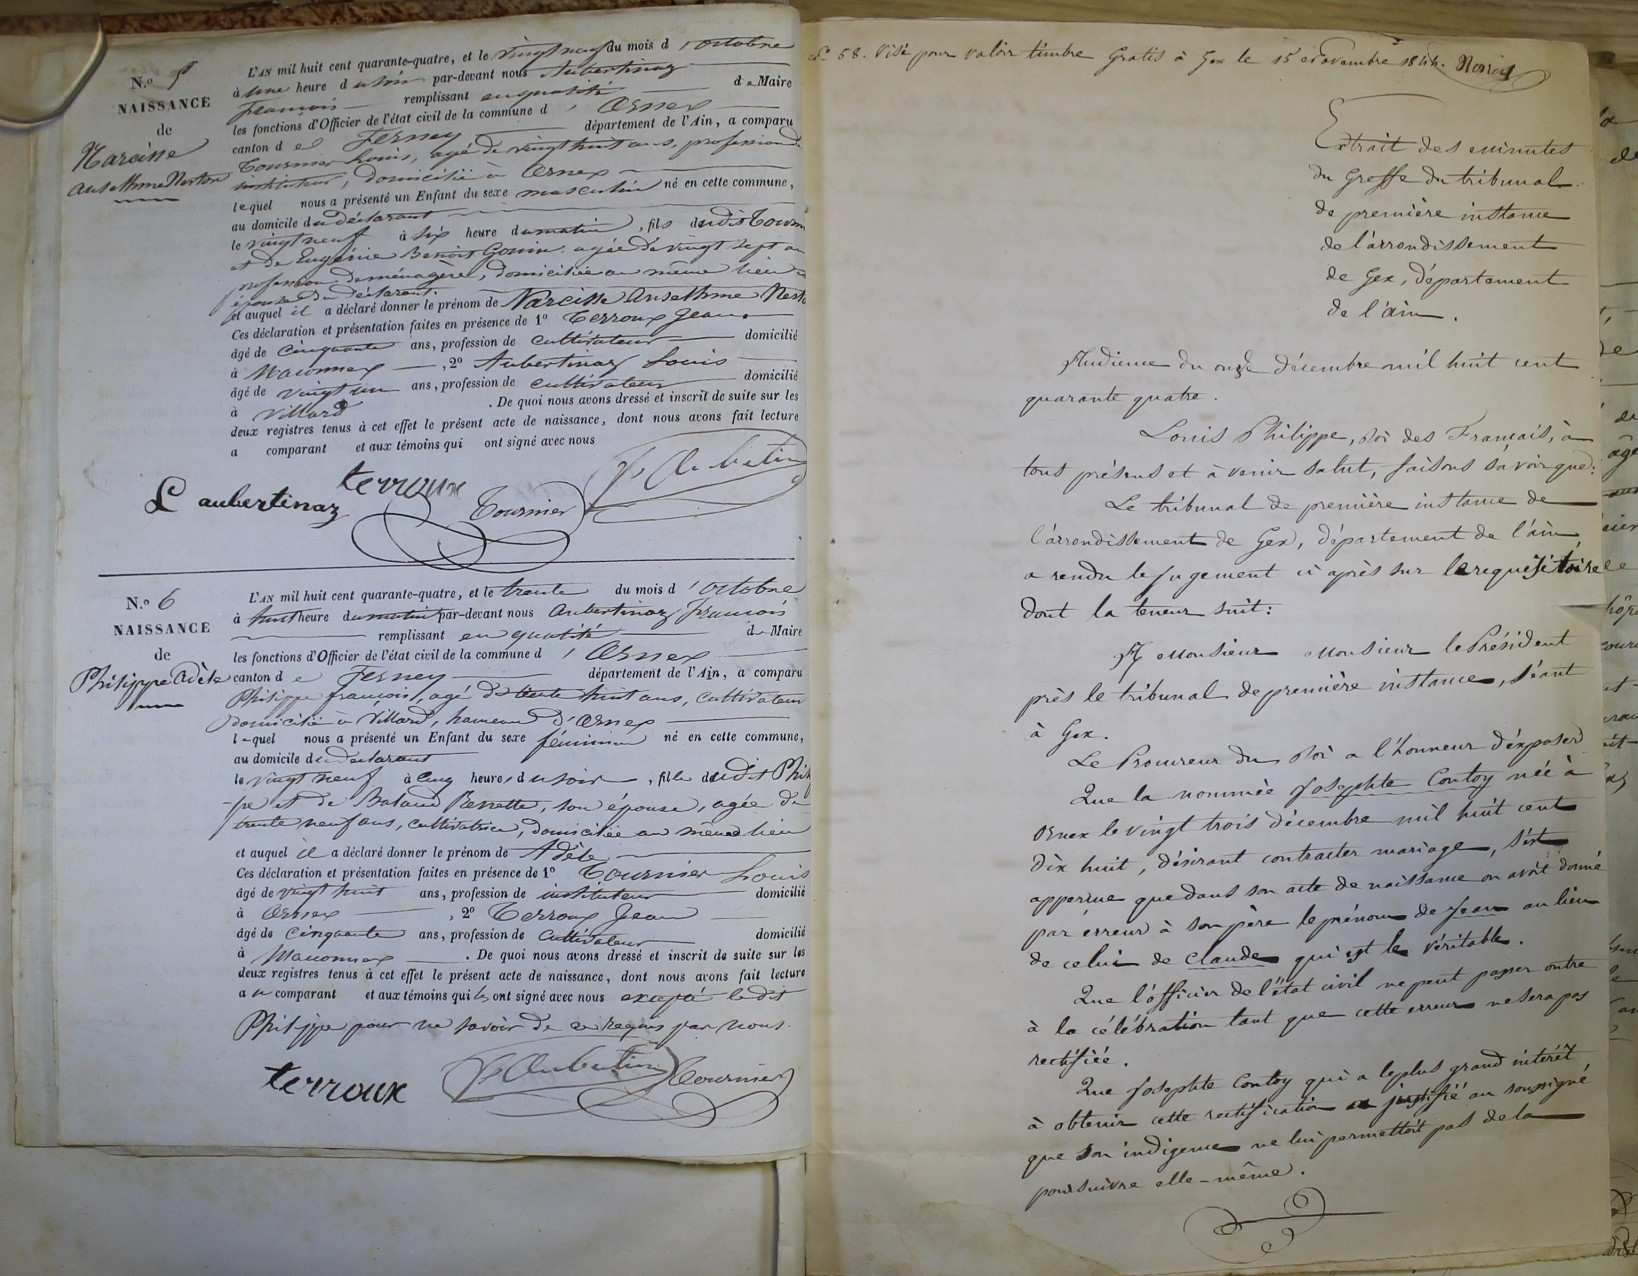 N.o 5
NAISSANCE
de
Narcisse
Anselthme Nestor
L'AN mil huit cent quarante-quatre, et le vingt neuf du mois d'octobre
à une heure du soir par-devant nous Aubertinaz
François remplissant en qualité de Maire
les fonctions d'Officier de l'état civil de la commune d'Ornex
canton de Ferney département de l'Ain, a comparu
Tournier Louis, agé de vingt huit ans, profession d'
instituteur, domicilié à Ornex
lequel nous a présenté un Enfant du sexe masculin né en cette commune,
au domicile du déclarant
le vingt neuf à six heure du matin, fils dudit Tourn
et de Eugénie Benoit Gonin agée de vingt sept an
profession de ménagère, domiciliée au même lieu
épouse du déclarant.
et auquel il a déclaré donner le prénom de Narcisse Anselthme Nesto
Ces déclaration et présentation faites en présence de 1o Terroux Jean
âgé de cinquante ans, profession de cultivateur domicilié
à Maconnex, 2o Aubertinaz Louis
âgé de vingt un ans, profession de cultivateur domicilié
à Villard. De quoi nous avons dressé et inscrit de suite sur les
deux registres tenus à cet effet le présent acte de naissance, dont nous avons fait lecture
a comparant et aux témoins qui ont signé avec nous
L aubertinaz terroux Tournier F Aubertin
N.o 6
NAISSANCE
de
Philippe Adèle
L'AN mil huit cent quarante-quatre, et le trente du mois d'octobre
à huit heure du matin par-devant nous Aubertinaz François
remplissant en qualité de Maire
les fonctions d'Officier de l'état civil de la commune d'Ornex
canton de Ferney département de l'Ain, a comparu
Philippe françois, agé de trente huit ans, cultivateur
domicilié à Villard, hameau d'Ornex
lequel nous a présenté un Enfant du sexe féminin né en cette commune,
au domicile du déclarant
le vingt neuf à cinq heures du soir, fille dudit Phili
pe et de Bataud Pernette, son épouse, agée de
trente neuf ans, cultivatrice, domiciliée au même lieu
et auquel il a déclaré donner le prénom de Adèle
Ces déclaration et présentation faites en présence de 1o Tournier Louis
âgé de vingt huit ans, profession de instituteur domicilié
à Ornex, 2o Terroux Jean
âgé de cinquante ans, profession de cultivateur domicilié
à Maconnex. De quoi nous avons dressé et inscrit de suite sur les
deux registres tenus à cet effet le présent acte de naissance, dont nous avons fait lecture
au comparant et aux témoins qui ont signé avec nous excepté ledit
Philippe pour ne savoir de ce requis par nous.
terroux F Aubertin Tournier
58. Visé pour valoir timbre Gratis à Gex le 15 Novembre 1844.
Extrait des minutes
du Greffe du tribunal
de première instance
de l'arrondissement
de Gex, département
de l'ain.
Audience du onze décembre mil huit cent
quarante quatre.
Louis Philippe, Roi des Français, à
tous présens et à venir salut, faisons savoir que:
Le tribunal de première instance de
l'arrondissement de Gex, département de l'ain
a rendu le jugement ci après sur le requisitoire
dont la teneur suit:
A Monsieur Monsieur le Président
près le tribunal de première instance, séant
à Gex.
Le Procureur du Roi a l'honneur d'exposer
Que la nommée Josephte Contoy née à
Ornex le vingt trois décembre mil huit cent
dix huit, désirant contracter mariage, s'est
apperçue que dans son acte de naissance on avait donné
par erreur à son père le prénom de Jean au lieu
de celui de Claude qui est le véritable.
Que l'officier de l'état civil ne peut passer outre
à la célébration tant que cette erreur ne sera pas
rectifiée.
Que Josephte Contoy qui a le plus grand intérêt
à obtenir cette rectification a justifié au soussigné
que son indigence ne lui permettoit pas de la
poursuivre elle-même.